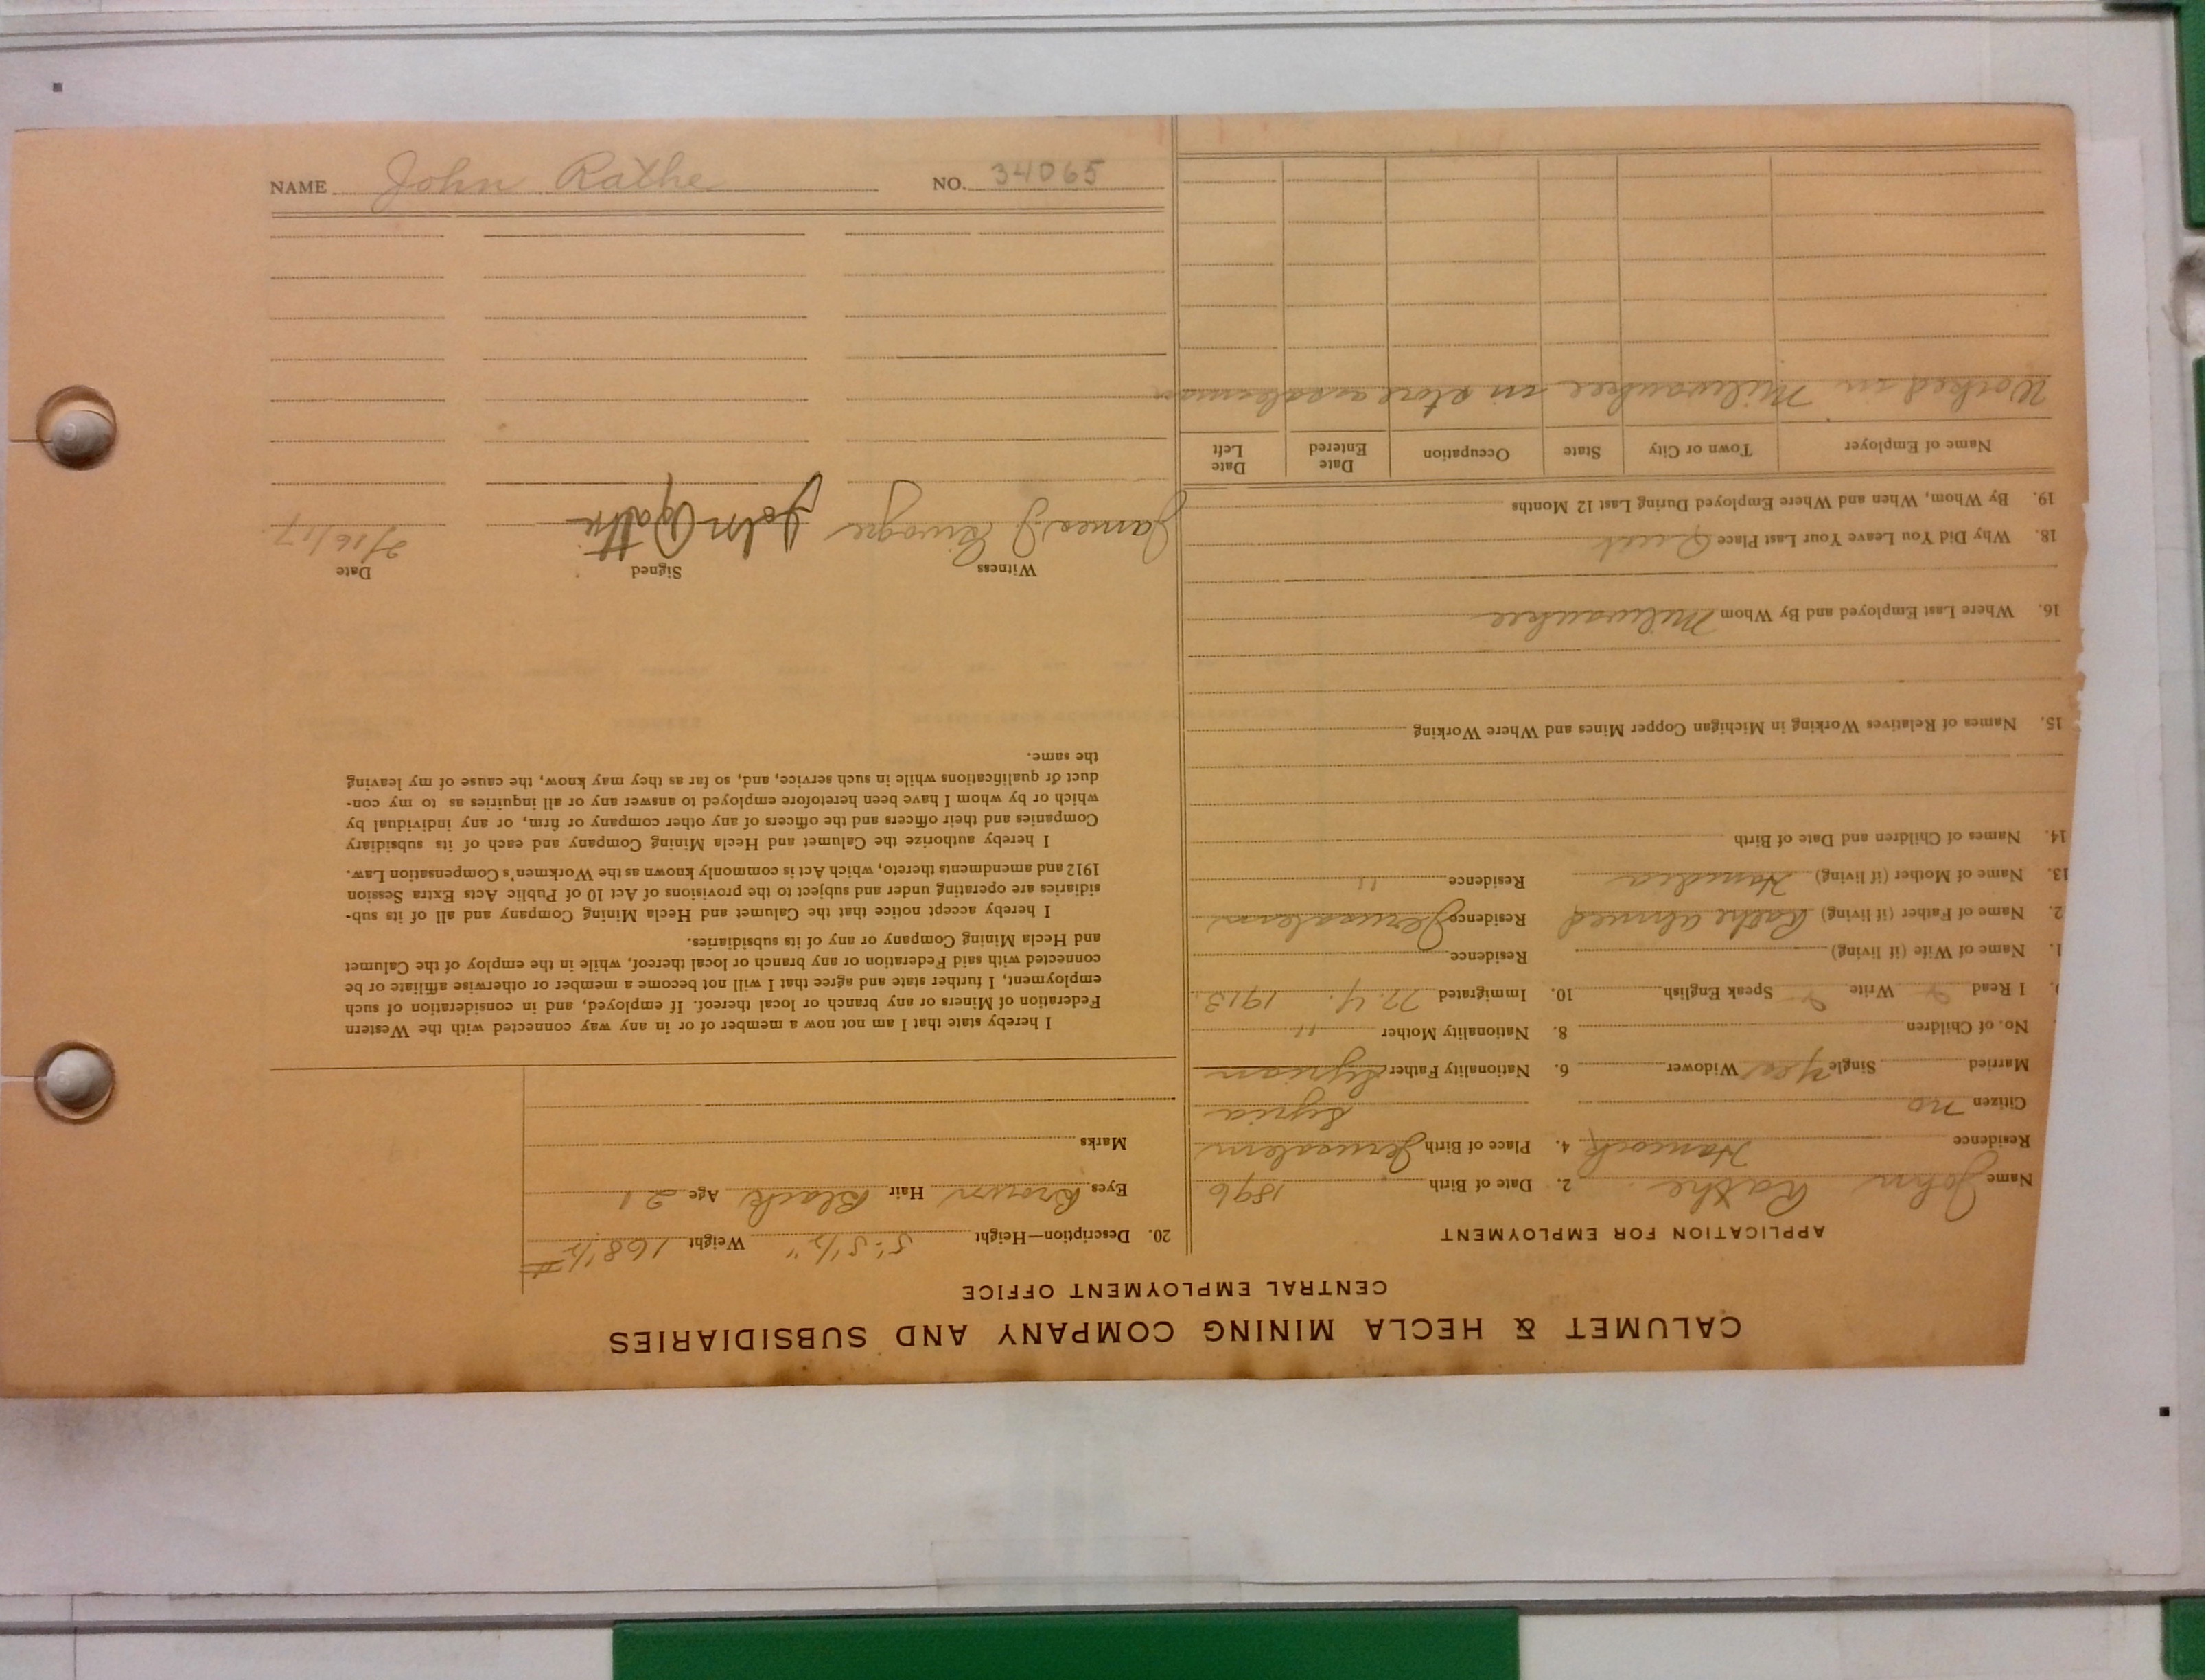 NAME John Rathe NO. 34065
CALUMET & HECLA MINING COMPANY AND SUBSIDIARIES
CENTRAL EMPLOYMENT OFFICE
APPLICATION FOR EMPLOYMENT
Name John Rathe 2. Date of Birth 1896
Residence Hancock 4. Place of Birth Jerusalem
Citizen no Syria
Married Single Yes Widower 6. Nationality Father Syrian
No. of Children 8. Nationality Mother "
I Read Write Speak English 10. Immigrated N.Y. 1913
1. Name of Wife (if living) Residence
2. Name of Father (if living) Rathe Ahmed Residence Jerusalem
13. Name of Mother (if living) Hamdia Residence "
14. Names of Children and Date of Birth
15. Names of Relatives Working in Michigan Copper Mines and Where Working
16. Where Last Employed and By Whom Milwaukee
18. Why Did You Leave Your Last Place Quit
19. By Whom, When and Where Employed During Last 12 Months
Name of Employer Town or City State Occupation Date Entered Date Left
Worked in Milwaukee in store as salesman
20. Description—Height 5'-5 1/2" Weight 168 1/2 #
Eyes Brown Hair Black Age 21
Marks
I hereby state that I am not now a member of or in any way connected with the Western
Federation of Miners or any branch or local thereof. If employed, and in consideration of such
employment, I further state and agree that I will not become a member or otherwise affiliate or be
connected with said Federation or any branch or local thereof, while in the employ of the Calumet
and Hecla Mining Company or any of its subsidiaries.
I hereby accept notice that the Calumet and Hecla Mining Company and all of its sub-
sidiaries are operating under and subject to the provisions of Act 10 of Public Acts Extra Session
1912 and amendments thereto, which Act is commonly known as the Workmen's Compensation Law.
I hereby authorize the Calumet and Hecla Mining Company and each of its subsidiary
Companies and their officers and the officers of any other company or firm, or any individual by
which or by whom I have been heretofore employed to answer any or all inquiries as to my con-
duct or qualifications while in such service, and, so far as they may know, the cause of my leaving
the same.
Witness Signed Date
James J John Rathe 2/16/17.